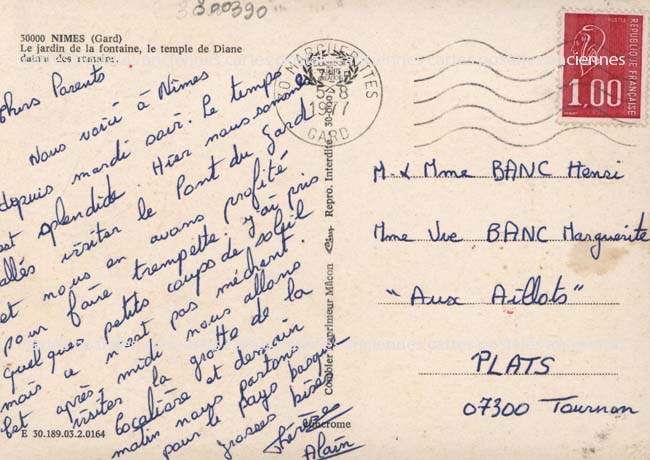 300390
30000 NIMES (Gard)
Le jardin de la fontaine, le temple de Diane
datant des romains.
Chers Parents
Nous voici à Nîmes
depuis mardi soir. Le temps
est splendide. Hier nous sommes
allés visiter le Pont du Gard
et nous en avons profité
pour faire trempette. j'ai pris
quelques petits coups de soleil
mais ce n'est pas méchant.
Cet après midi nous allons
visiter la grotte de la
Cocalière et demain
matin nous partons
pour le pays basque
grosses bises
Thérèse
Alain
E 30.189.03.2.0164
Combier Imprimeur Mâcon Repro. Interdite
30 MARGUERITTES
5-8
1977
GARD
REPUBLIQUE FRANÇAISE
1,00
M. & Mme BANC Henri
Mme Vve BANC Marguerite
"Aux Aillots"
PLATS
07300 Tournon